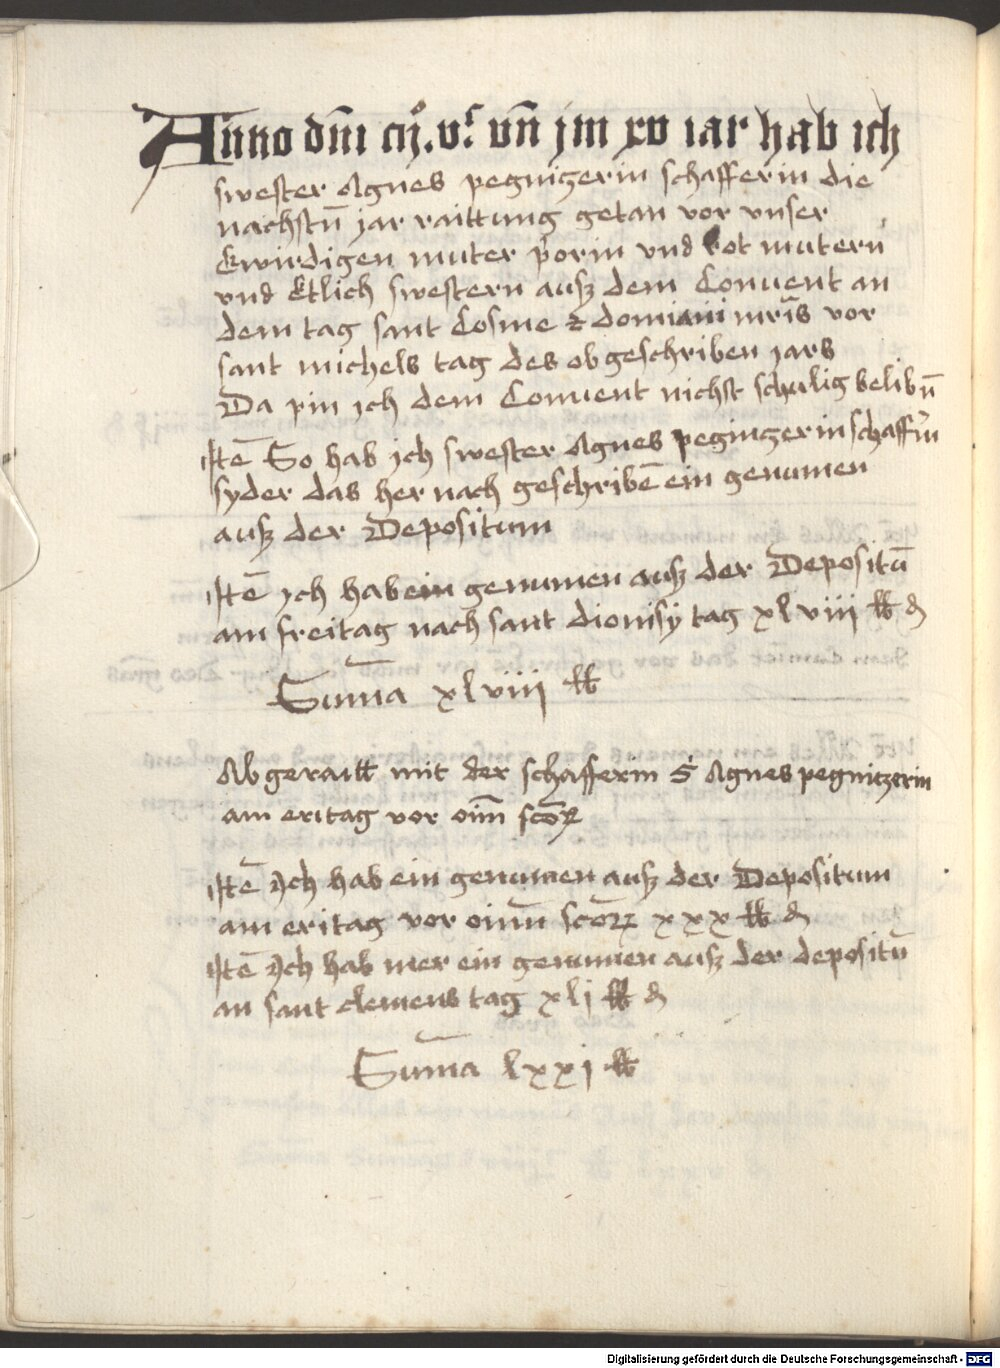 Anno dn̄i cıj.vͨ. vn̄ jm xv iar hab ich
swester Agnes pegnizerin schafferin die
nachstn̄ jar raittung getan vor vnser
Erwirdigen muter priorin vnd Rot mutern
vnd Etlich swestern ausz dem Conuent an
dem tag sant Cosme z domiani mr̄is vor
sant michels tag des obgeschriben jars
Da pin ich dem Conuent nichst schulig belibn̄
Itē So hab ich swester Agnes pegnizerin schaff̄in
syder das her nach geschribē ein genumen
ausz der Depositum
Itē ich hab ein genumen ausz der Depositū
am freitag nach sant dionisy tag xlviii ℔ ₰
Sum̄a xlviij ℔
Abgeraitt mit der schafferin S Agnes pegnitzerin
am eritag vor oīm scōꝝ
Itē Ich hab ein genumen ausz der Depositum
am eritag vor oim̄ scōꝝ xxx ℔ ₰
Itē Ich hab mer ein genumen ausz der depositū
an sant clemens tag xlj ℔ ₰
Sum̄a lxxj ℔
Digitalisierung gefördert durch die Deutsche Forschungsgemeinschaft - DFG